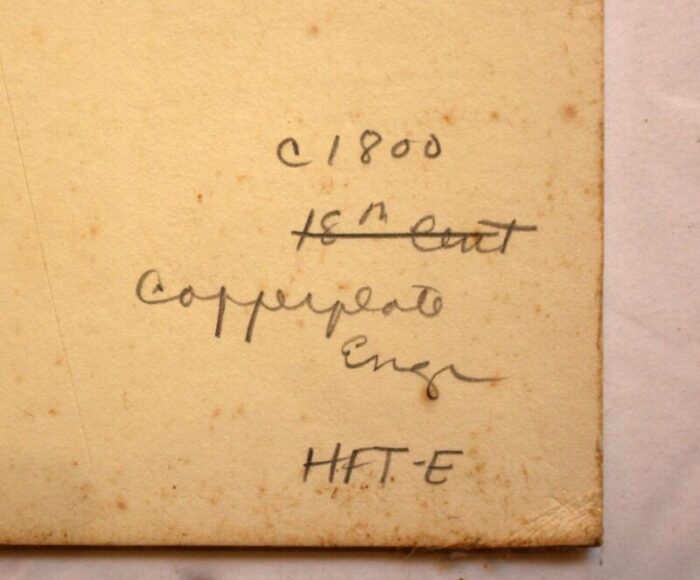 C 1800
18th Cent
Copperplate
Engr
HFT-E